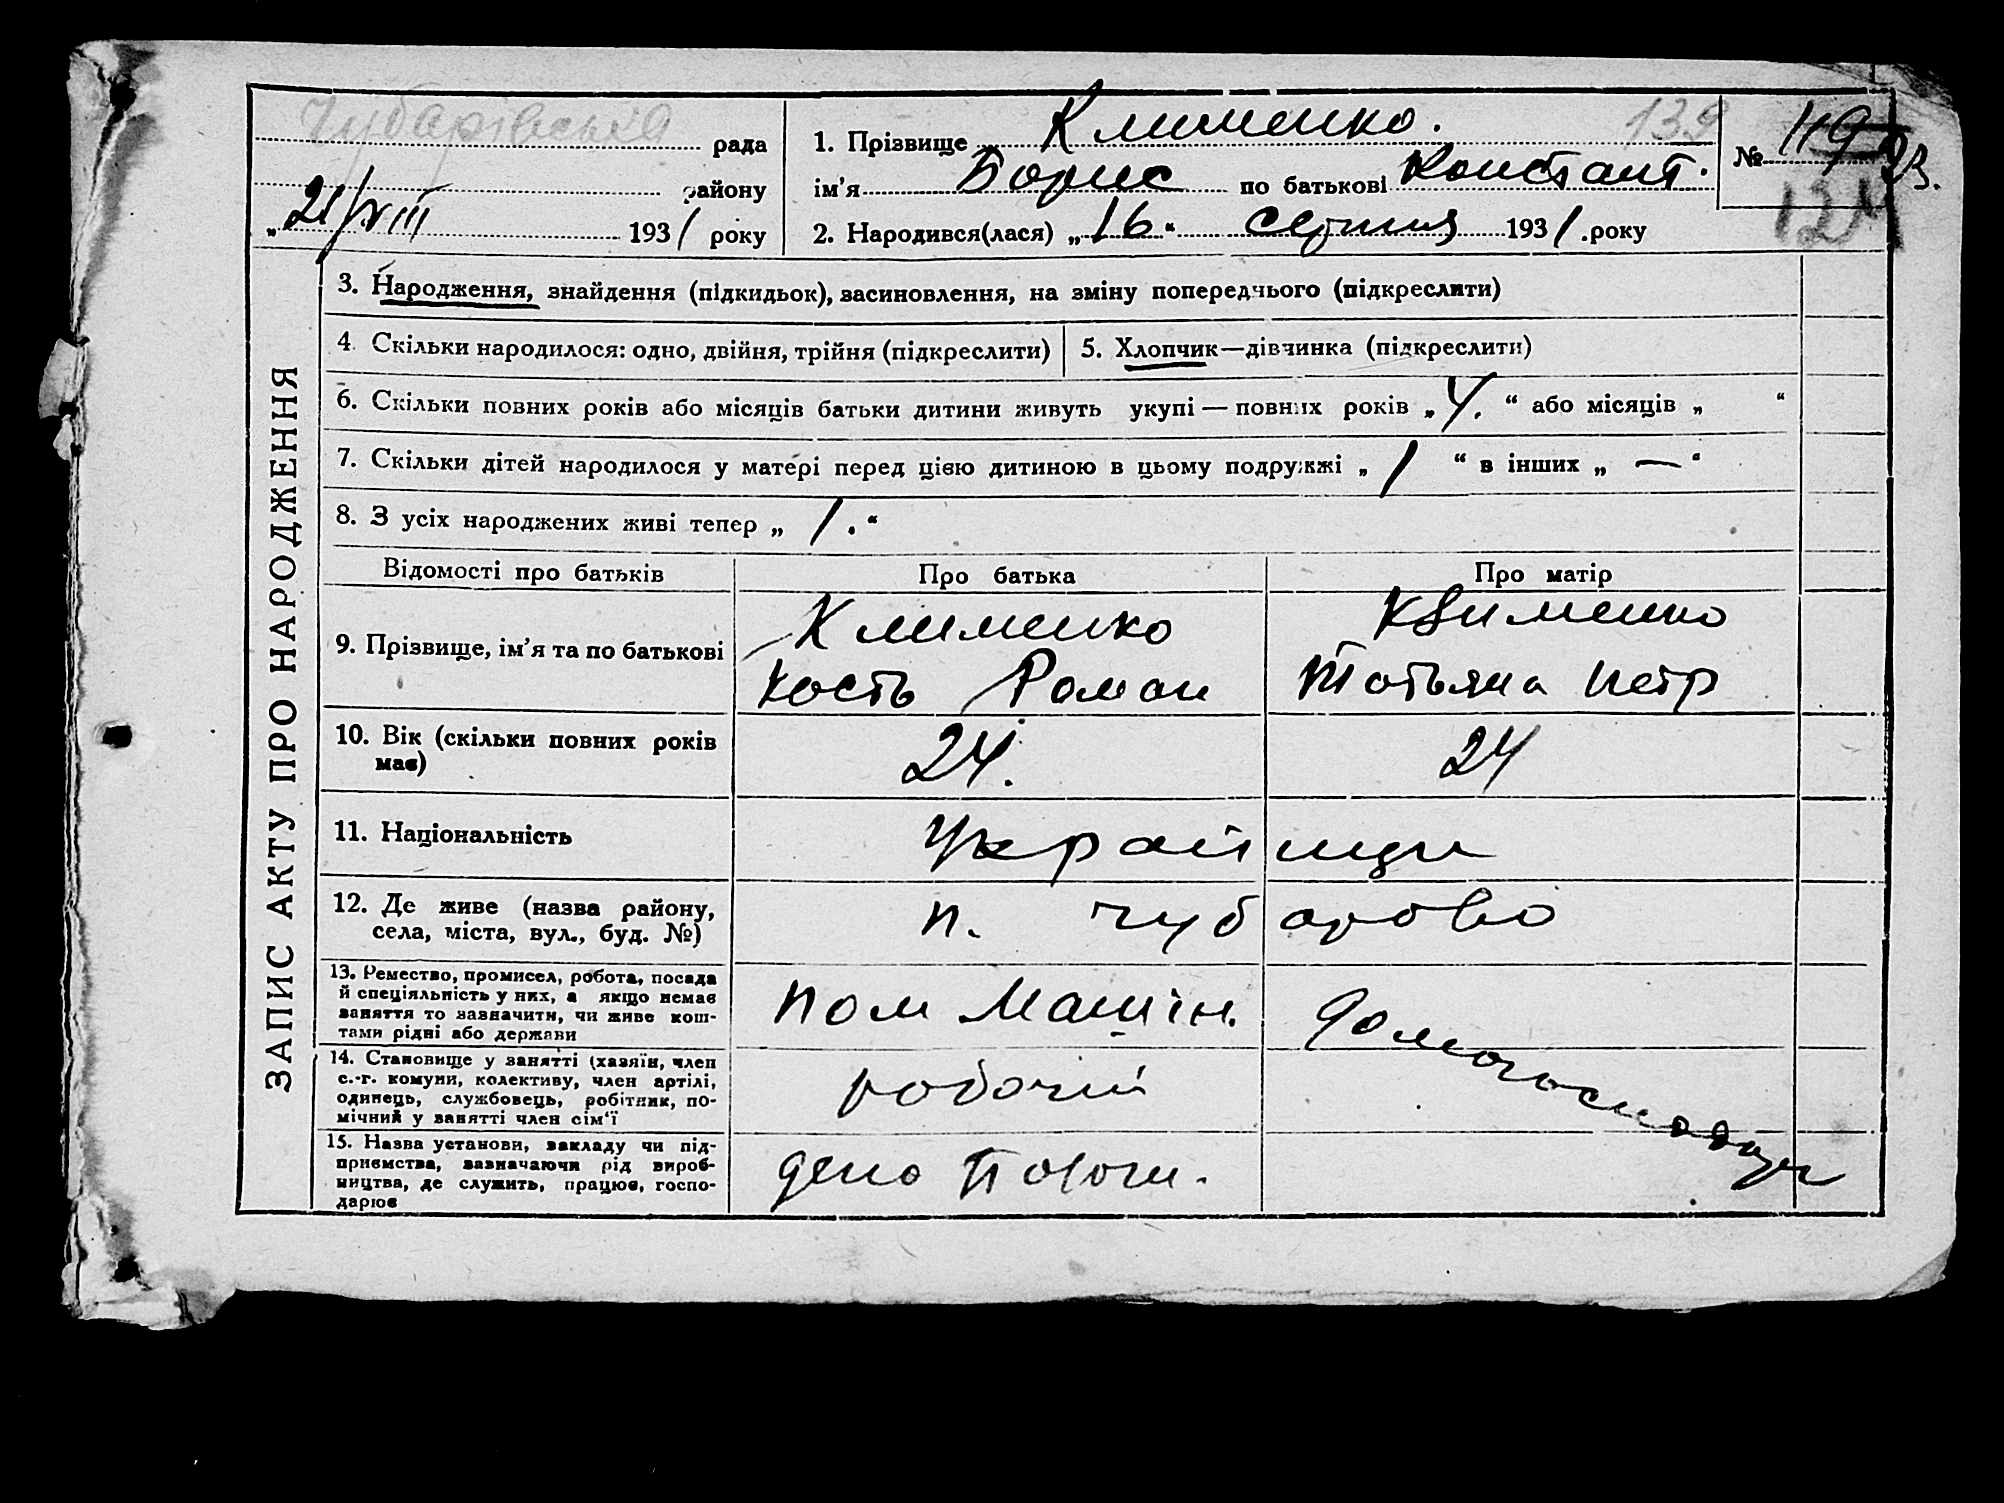 Чубарівська рада
району
„21/VIII 1931 року
1. Прізвище Клименко. 139
ім’я Борис по батькові Констант.
2. Народився(лася) „16“ серпня 1931. року
№ 119
124
ЗАПИС АКТУ ПРО НАРОДЖЕННЯ
3. Народження, знайдення (підкидьок), засиновлення, на зміну попереднього (підкреслити)
4. Скільки народилося: одно, двійня, трійня (підкреслити) 5. Хлопчик—дівчинка (підкреслити)
6. Скільки повних років або місяців батьки дитини живуть укупі — повних років „4.“ або місяців „ “
7. Скільки дітей народилося у матері перед цією дитиною в цьому подружжі „1“ в інших „—“
8. З усіх народжених живі тепер „1.“
Відомості про батьків Про батька Про матір
9. Прізвище, ім’я та по батькові
Клименко
Кость Роман
Клименко
Татьяна Петр
10. Вік (скільки повних років
має)
24. 24
11. Національність Українци
12. Де живе (назва району,
села, міста, вул., буд. №)
п. Чубарово
13. Ремество, промисел, робота, посада
й спеціяльність у них, а якщо немає
заняття то зазначити, чи живе кош-
тами рідні або держави
пом Машін. домогосподарк
14. Становище у занятті (хазяїн, член
с.-г. комуни, колективу, член артілі,
одинець, службовець, робітник, по-
мічний у занятті член сім‘ї
робочий
15. Назва установи, закладу чи під-
приємства, зазначаючи рід вироб-
ництва, де служить, працює, госпо-
дарює
депо Пологи.